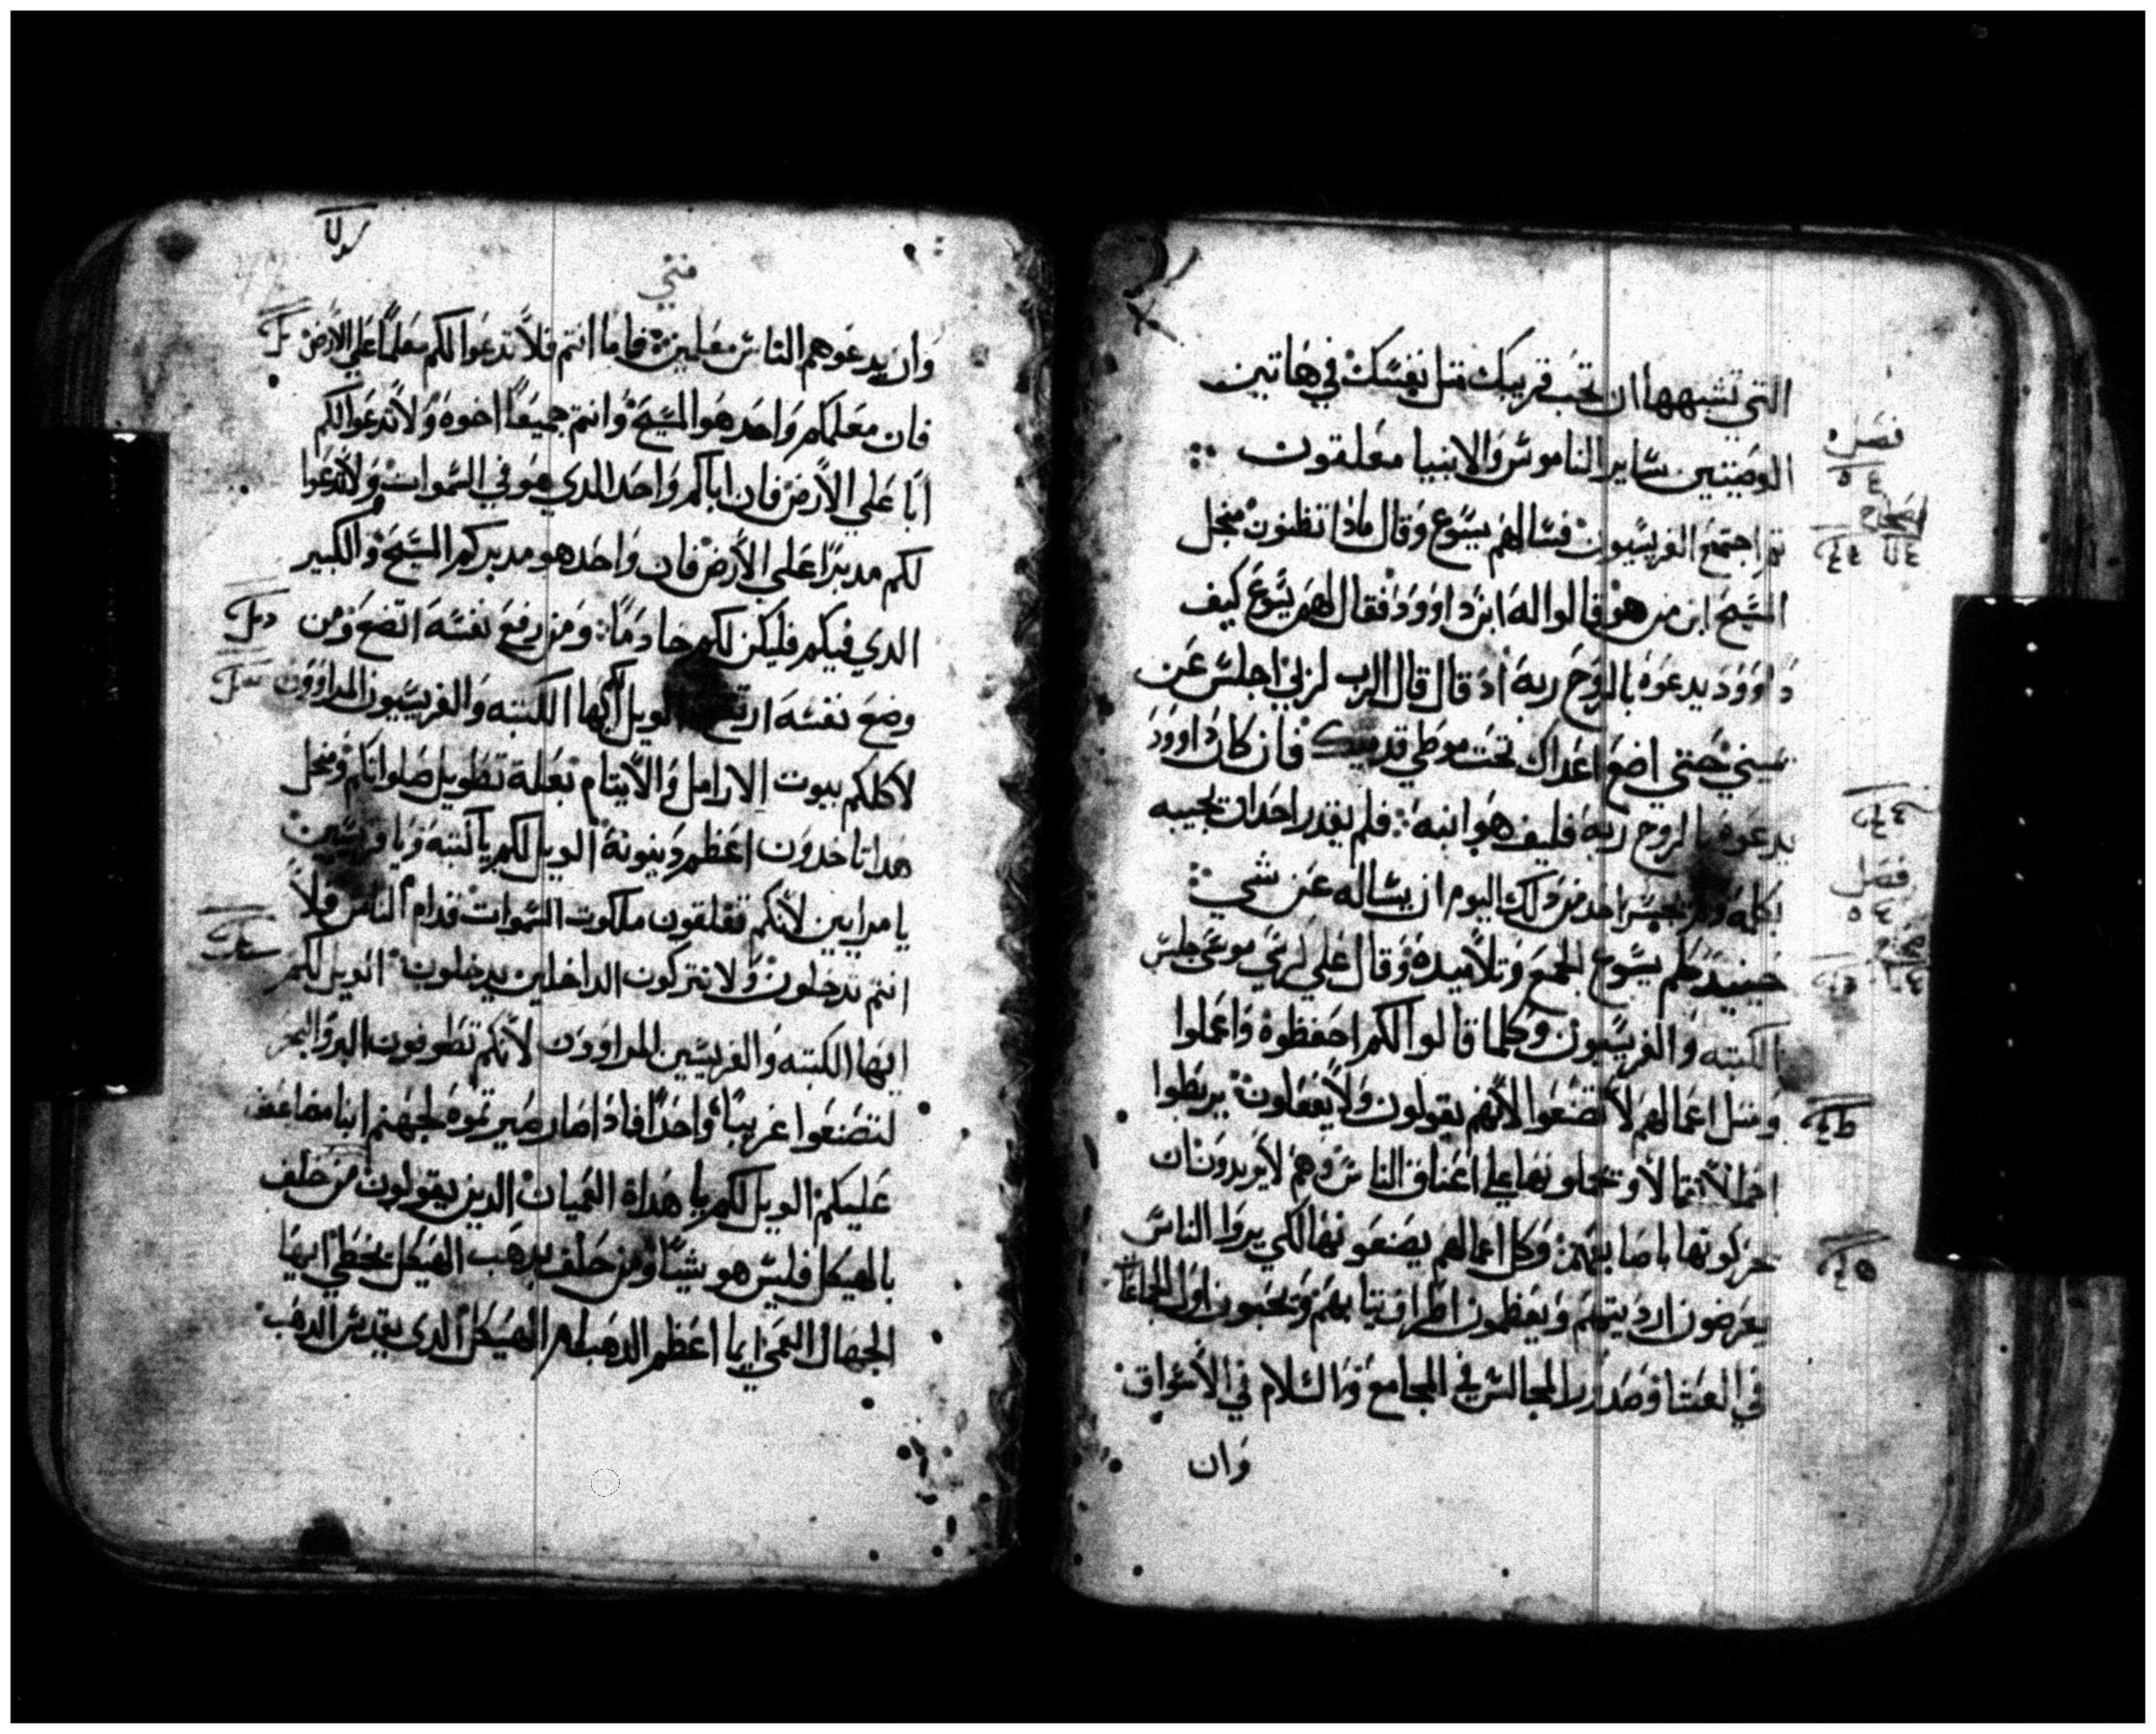 التي تشبهها ان تحب قريبك متل نفسك في هاتين
الوصيتين ساير الناموس والانبيا معلقون
فصل
تم اجتمع الفريسيون فسالهم يسوع وقال ماذا تظنون من اجل
المسيح ابن من هو قالوا له ابن داوود فقال لهم يسوع كيف
داوود يدعوه بالروح ربه اد قال قال الرب لربي اجلس عن
يميني حتي اضع اعداك تحت موطي قدميك فان كان داوود
يدعوه بالروح ربه فكيف هو ابنه فلم يقدر احدا ان يجيبه
فصل
بكلمه ولم يجسر احد من دلك اليوم ان يساله عن شي
حينيد كلم يسوع الجمع وتلاميده وقال علي كرسي موسي جلس
الكتبه والفريسيون وكلما قالوا لكم احفظوه واعملوا
ومتل اعمالهم لا تصنعوا لانهم يقولون ولا يفعلون يربطوا
احمالا تقالا ويحملونها علي اعناق الناس وهم لا يريدون ان
يحركونها باصابعهم وكل اعمالهم يصنعونها لكي يروا الناس
يعرضون ارديتهم ويعظمون اطراف تيابهم ويحبون اول الجماعات
في العشا وصدور المجالس في المجامع والسلام في الاسواق
وان
متي
وان يدعوهم الناس معلمين فاما انتم فلا تدعوا لكم معلما علي الارض
فان معلمكم واحد هو المسيح وانتم جميعا اخوه ولا تدعوا لكم
ابا علي الارض فان اباكم واحد الدي هو في السموات ولا تدعوا
لكم مدبرا علي الارض فان واحد هو مدبركم المسيح والكبير
الدي فيكم فليكن لكم خادما ومن رفع نفسه اتضع ومن
وضع نفسه ارتفع الويل لكم ايها الكتبه والفريسيون المراوون
لاكلكم بيوت الارامل والايتام بعلة تطويل صلواتكم ومن اجل
هدا تاخدون اعظم دينونة الويل لكم يا كتبه ويا فريسيين
يا مرايين لانكم تغلقون ملكوت السموات قدام الناس فلا
انتم تدخلون ولا تتركون الداخلين يدخلون الويل لكم
ايها الكتبه والفريسيين المراوون لانكم تطوفون البر والبحر
لتصنعوا غريبا واحدا فادا صار صيرتموه لجهنم ابنا مضاعف
عليكم الويل لكم يا هداة العميان الدين يقولون من حلف
بالهيكل فليس هو شيا ومن حلف بدهب الهيكل يخطي ايها
الجهال العمي ايما اعظم الدهب ام الهيكل الدي يقدس الدهب